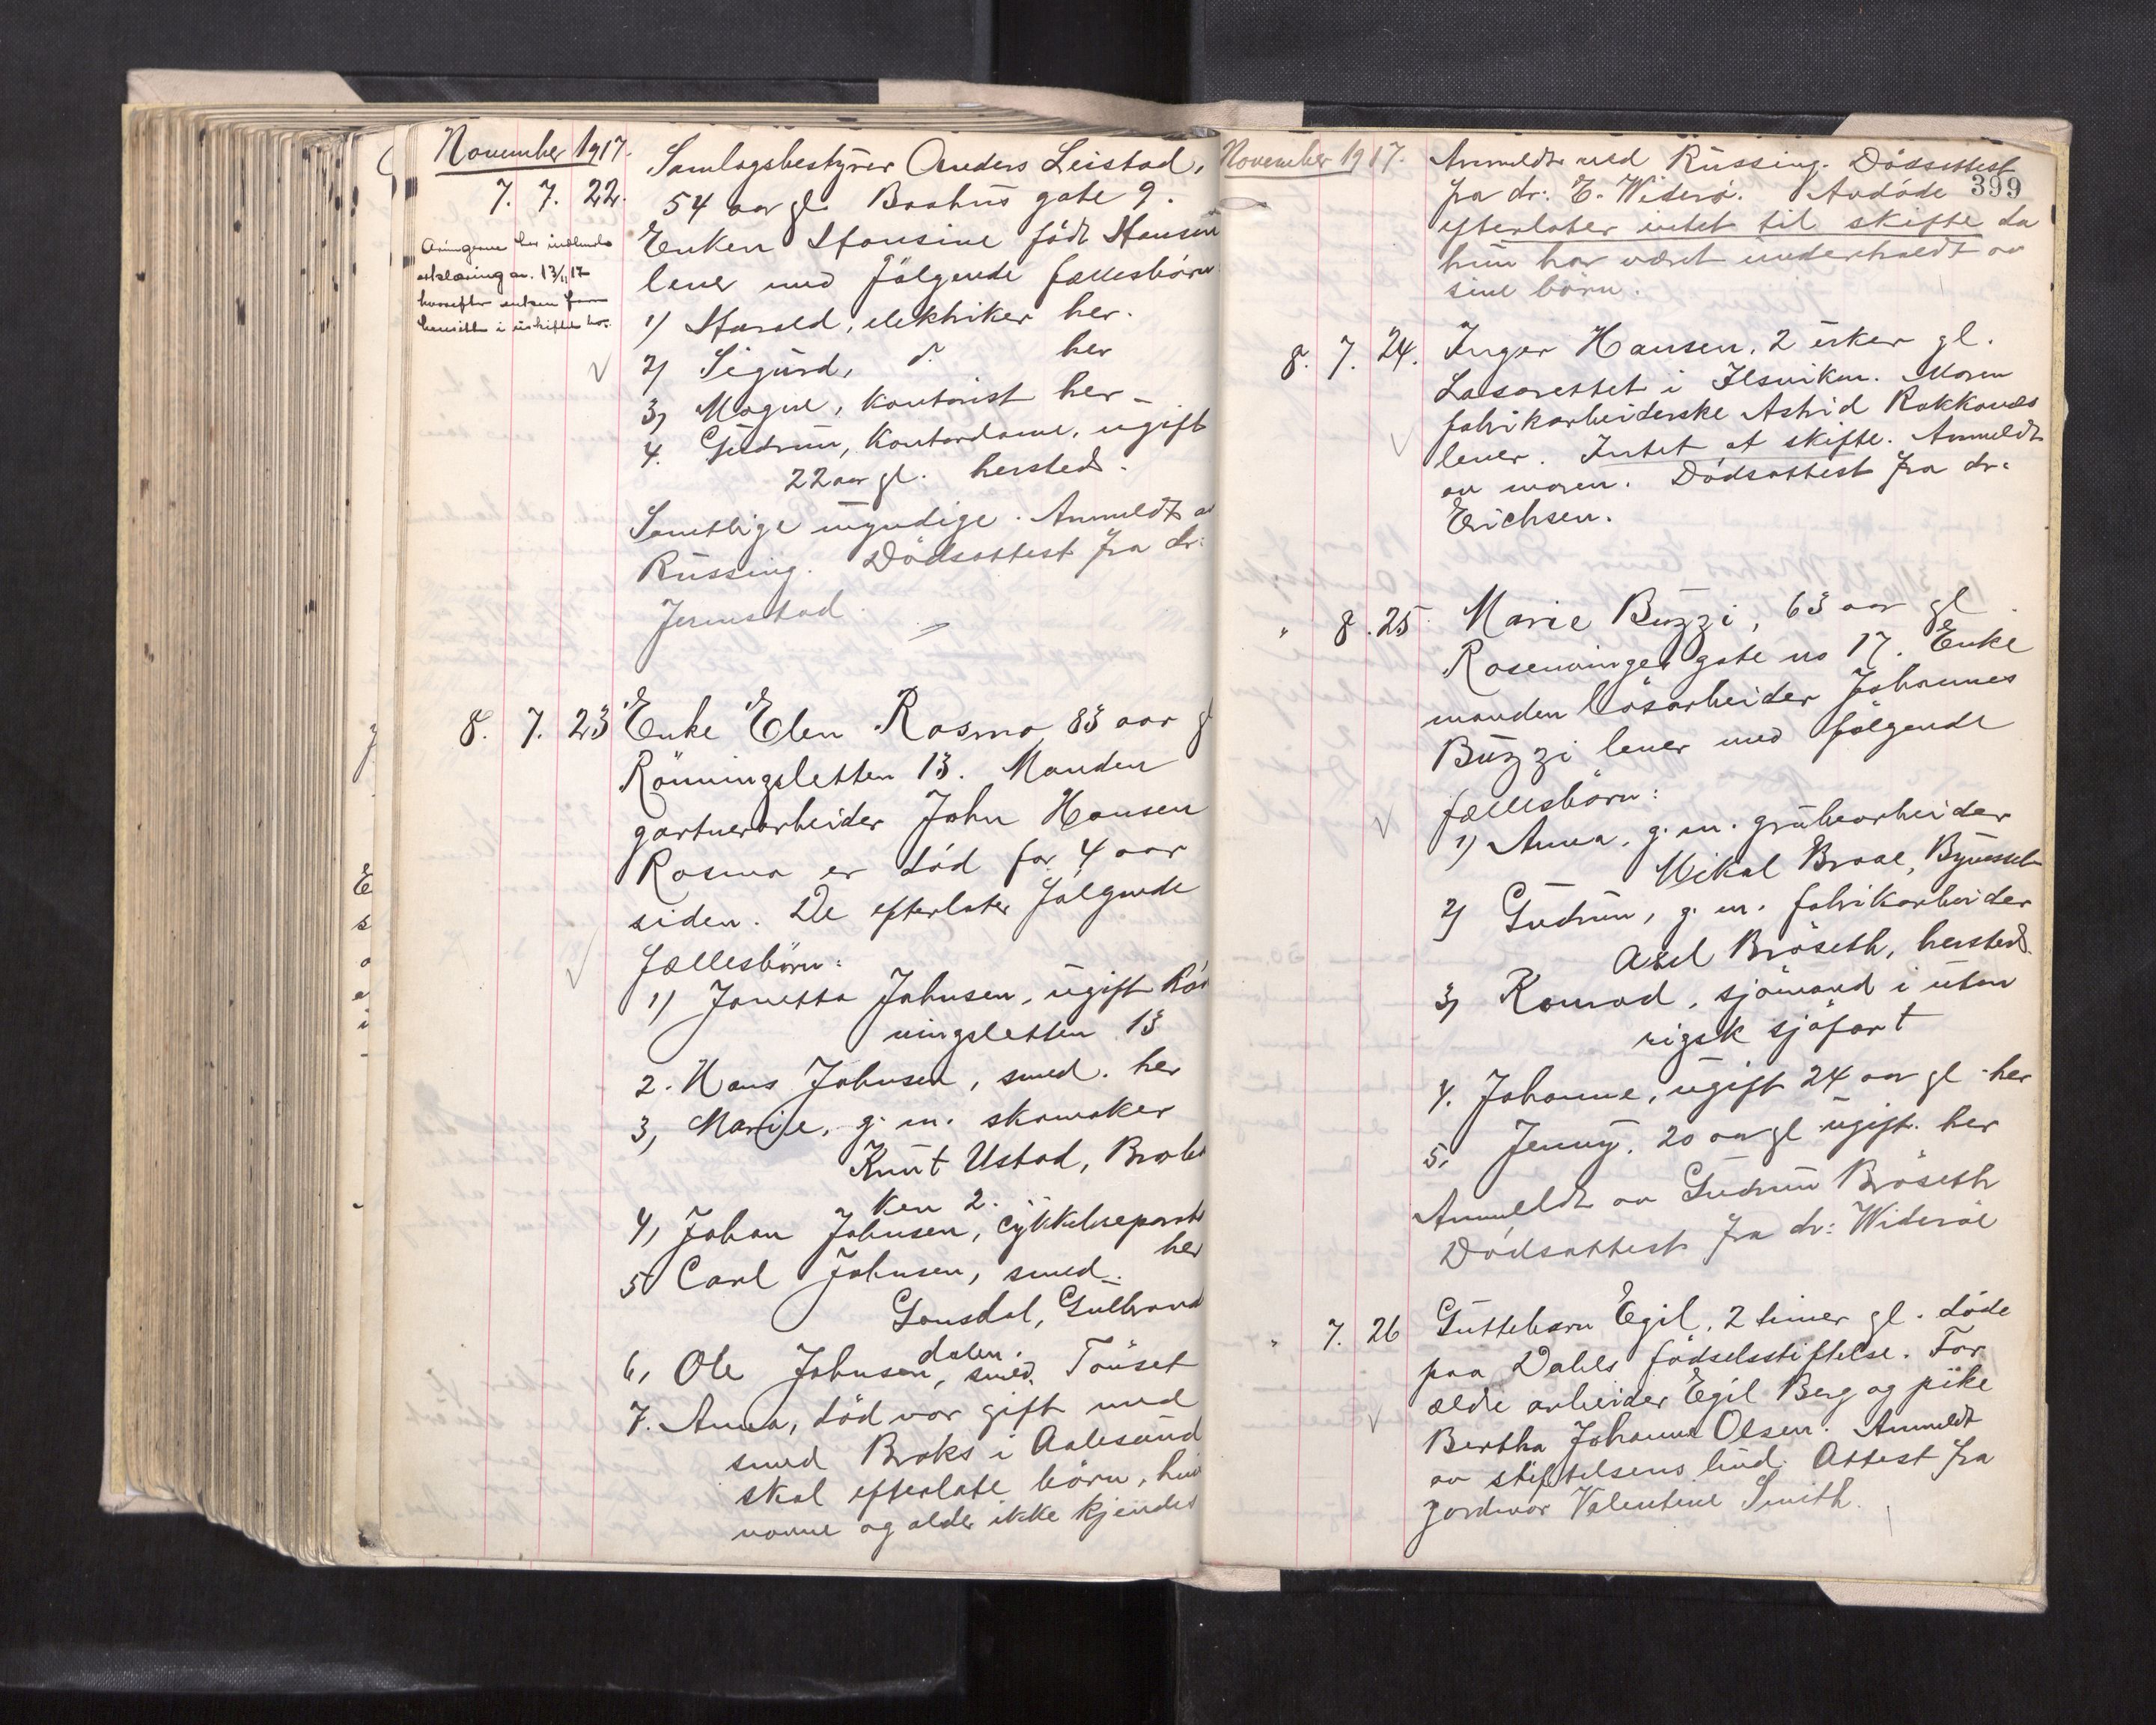 November 1917.
7. 7. 22.
Samlagsbestyrer Anders Leistad,
54 aar gl. Baahus gate 9.
Enken Hansine født Hansen
lever med følgende fællesbörn
1) Harald, elektriker her.
2) Sigurd, d. her
3) Magne, kontorist her
4. Gudrun, Kontordame, ugift
22 aar gl. hersteds.
Samtlige myndige. Anmeldt av
Rüssing. Dödsattest fra dr:
Jermstad.
erklæring av 13/11 17
8. 7. 23
Enke Elen Rosmo 83 aar gl
Rönningsletten 13. Manden
gartnerarbeider John Hansen
Rosmo er död for 4 aar
siden. De efterlater følgende
fællesbörn:
1) Janetta Johnsen, ugift Rön
ningsletten 13
2. Hans Johnsen, smed. her
3, Marie, g. m. skomaker
Knut Ustad, Brat
ken 2.
4, Johan Johnsen, cykkelreparatör
her
5 Carl Johnsen, smed.
Gausdal, Gulbrands
dalen.
6, Ole Johnsen, smed. Tönset
7. Anna, död var gift med
smed Broks i Aalesund
skal efterlate börn, hvis
navne og alder ikke kjendes
November 1917.
399
Anmeldt ved Rüssing. Dödsattest
fra dr: E. Widerö. Avdöde
efterlater intet til skifte da
hun har været underholdt av
sine börn.
8. 7. 24.
Inger Hansen, 2 uker gl.
Lasarettet i Ilsviken. Moren
fabrikarbeiderske Astrid Rokkones
lever. Intet at skifte. Anmeldt
av moren. Dödsattest fra dr:
Erichsen.
" 8. 25
Marie Buzzi, 63 aar gl.
Rosenvinges gate no 17. Enke
manden lösarbeider Johannes
Buzzi lever med følgende
fællesbörn:
1) Anna, g. m. grubearbeider
Mikal Braae, Bynesset
2) Gudrun, g. m. fabrikarbeider
Axel Bröseth, hersteds.
3, Konrad, sjömand i uten
rigsk sjöfart
4. Johanne, ugift 24 aar gl her
5, Jenny. 20 aar gl ugift. her
Anmeldt av Gudrun Bröseth
Dödsattest fra dr: Wideröe
" 7. 26
Guttebarn Egil, 2 timer gl. döde
paa Dahls fødselsstiftelse. For
ældre arbeider Egil Berg og pike
Bertha Johanne Olsen. Anmeldt
av stiftelsens bud. Attest fra
jordmor Valentine Smith.